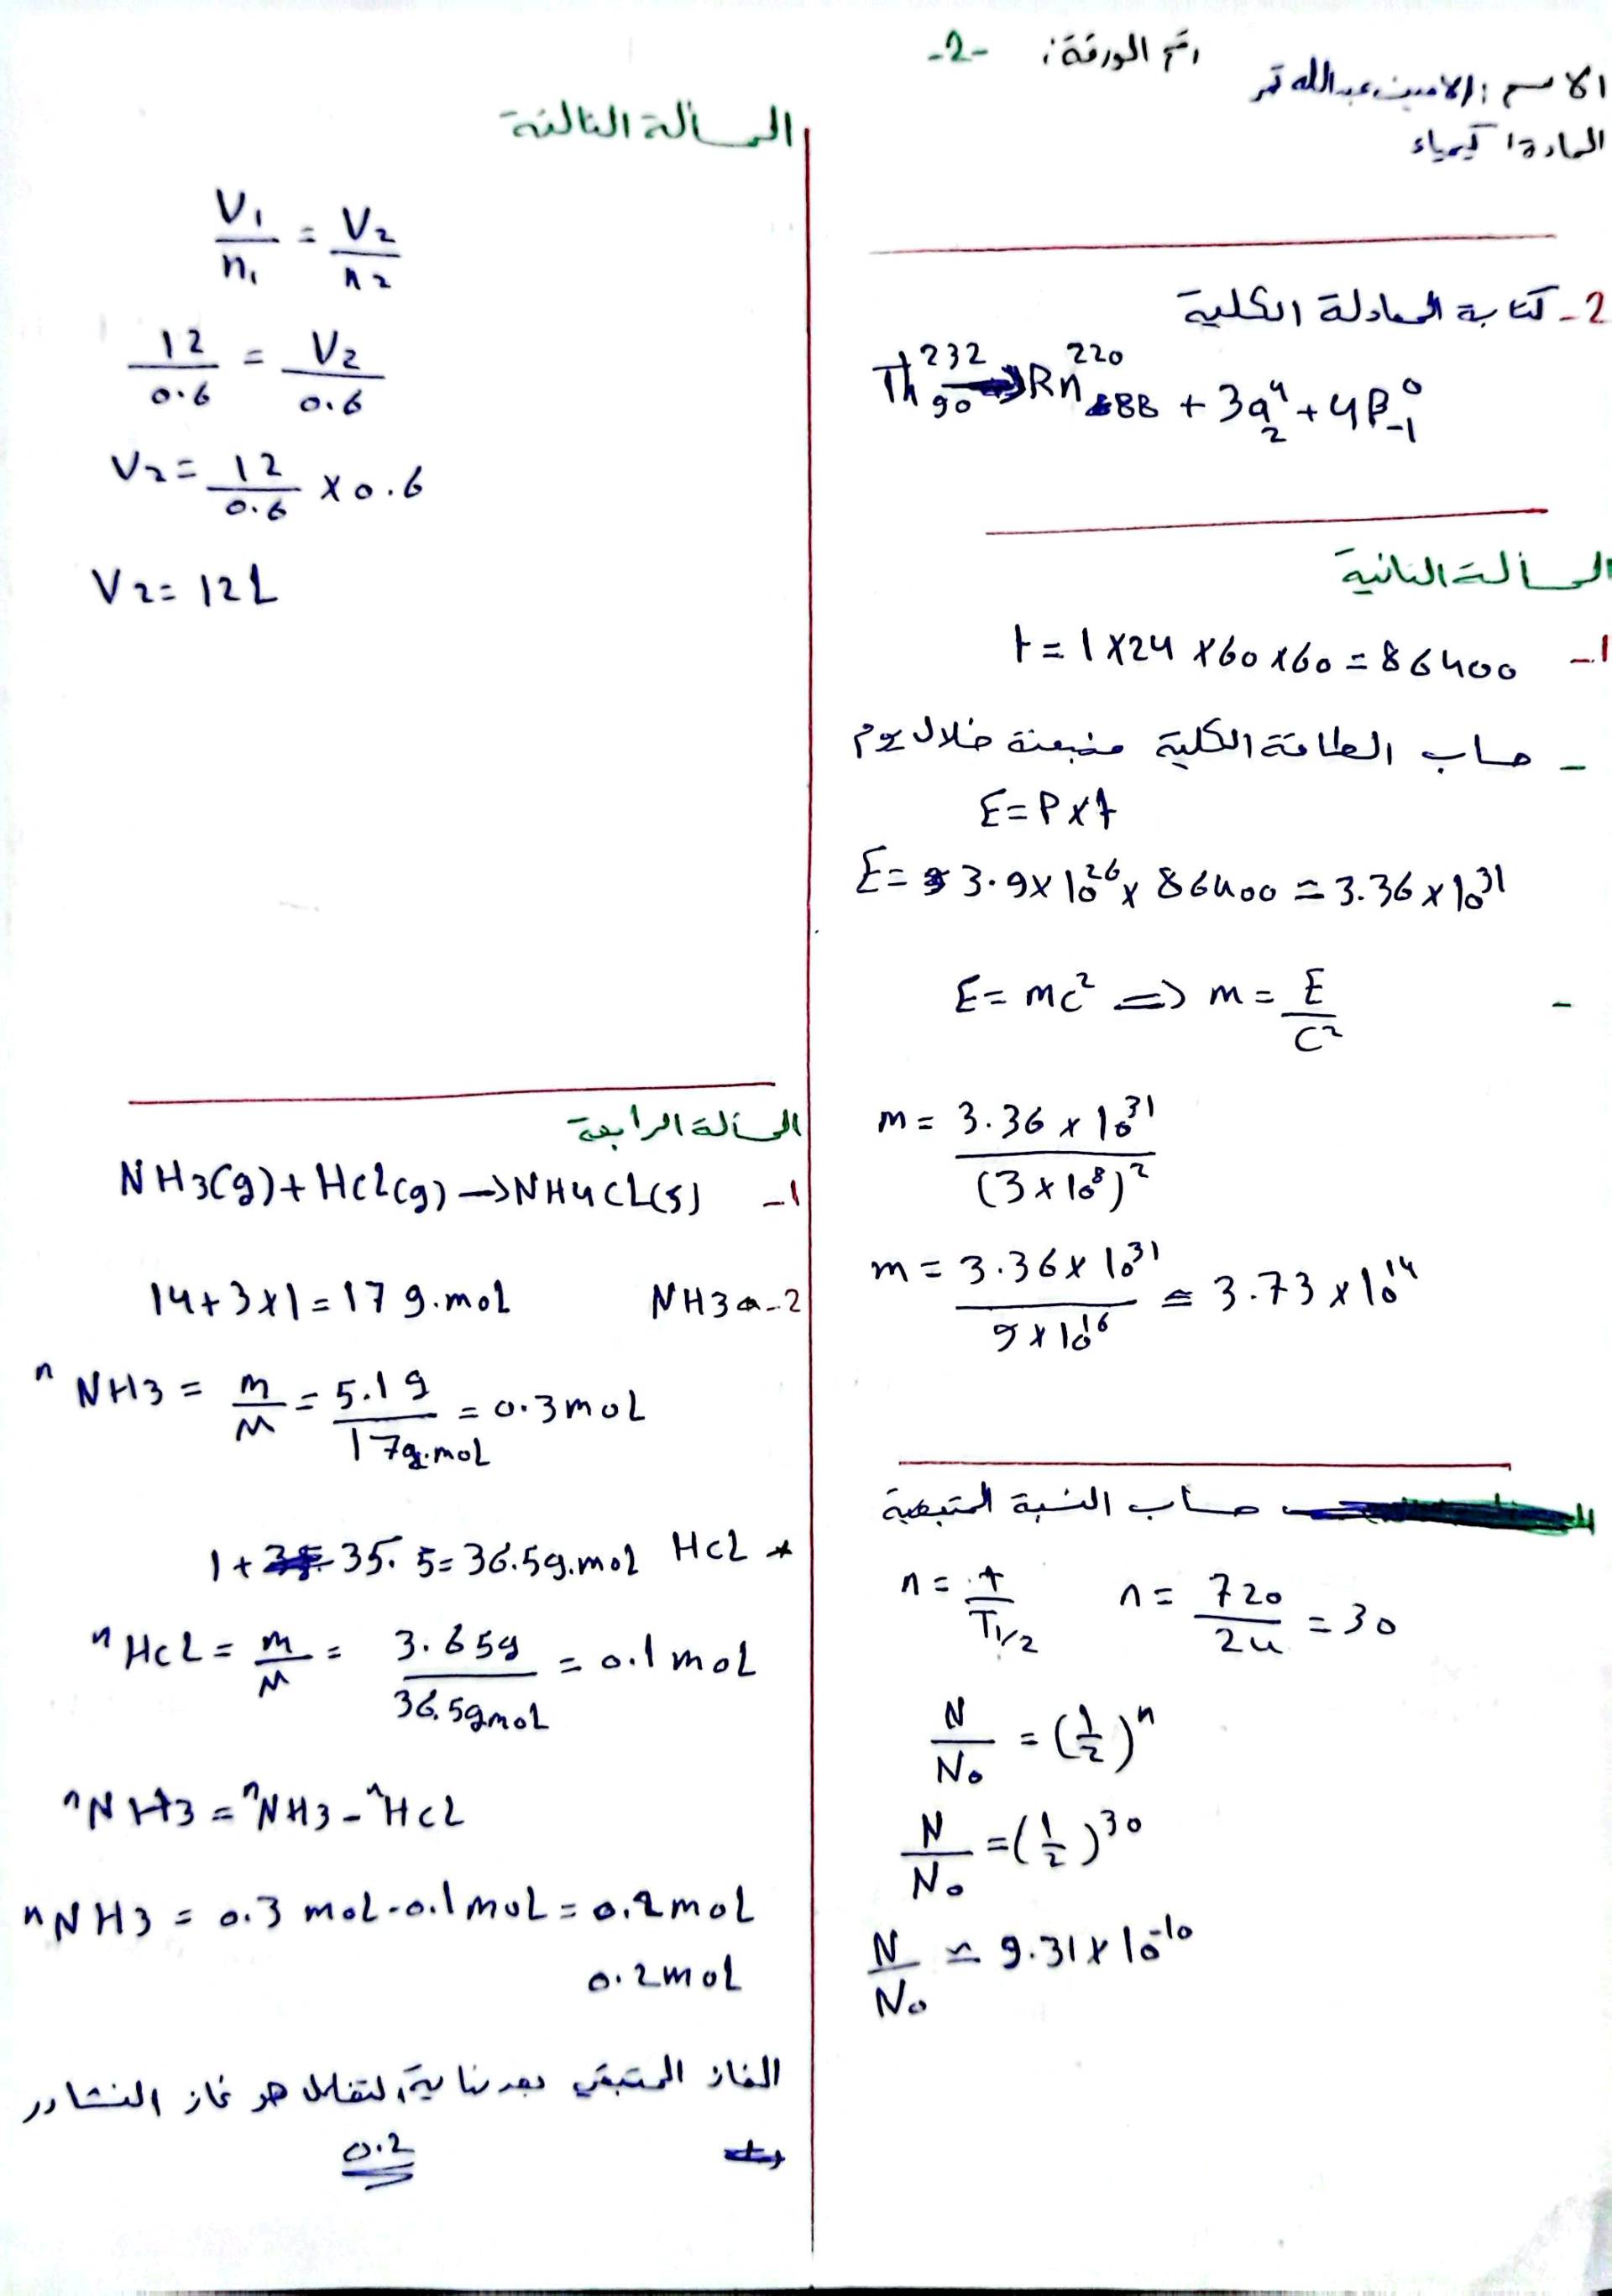 الاسم : الامين عبدالله تمر
رقم الورقة : -2-
المادة : كيمياء
2- كتابة المعادلة الكلية
Th²³²₉₀ → Rn²²⁰₈₈ + 3α⁴₂ + 4β⁰₋₁
المسألة الثانية
1- t = 1 × 24 × 60 × 60 = 86400
- حساب الطاقة الكلية منبعثة خلال يوم
E = P × t
E = 3.9 × 10²⁶ × 86400 = 3.36 × 10³¹
- E = mc² ⇒ m = E / C²
m = 3.36 × 10³¹ / (3 × 10⁸)²
m = 3.36 × 10³¹ / 9 × 10¹⁶ ≃ 3.73 × 10¹⁴
حساب النسبة المتبقية
n = t / T1/2 n = 720 / 24 = 30
N / N₀ = (1/2)ⁿ
N / N₀ = (1/2)³⁰
N / N₀ ≃ 9.31 × 10⁻¹⁰
المسألة الثالثة
V₁ / n₁ = V₂ / n₂
12 / 0.6 = V₂ / 0.6
V₂ = 12 / 0.6 × 0.6
V₂ = 12L
المسألة الرابعة
1- NH3(g) + HcL(g) → NH4CL(s)
2- NH3 14 + 3×1 = 17 g.moL
ⁿNH3 = m / M = 5.1 g / 17g.moL = 0.3 moL
* HcL 1 + 35.5 = 36.5g.moL
ⁿHcL = m / M = 3.65g / 36.5gmoL = 0.1 moL
ⁿNH3 = ⁿNH3 - ⁿHcL
ⁿNH3 = 0.3 moL - 0.1 moL = 0.2 moL
0.2 moL
الغاز المتبقي بعد نهاية التفاعل هو غاز النشادر
0.2